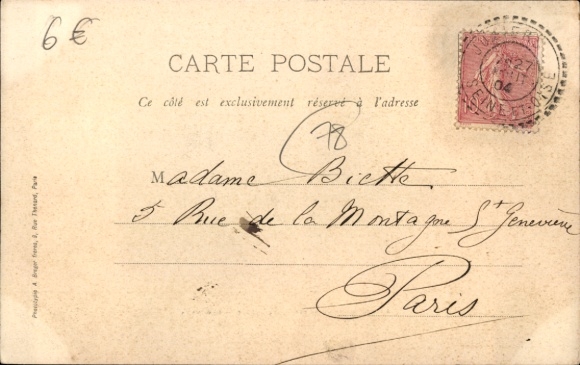 6 €
CARTE POSTALE
Ce côté est exclusivement réservé à l'adresse
78
Madame Biette
5 Rue de la Montagne St Geneviève
Paris
27
04
SEINE-ET-OISE
Phototypie A. Breger frères, 9, Rue Thénard, Paris